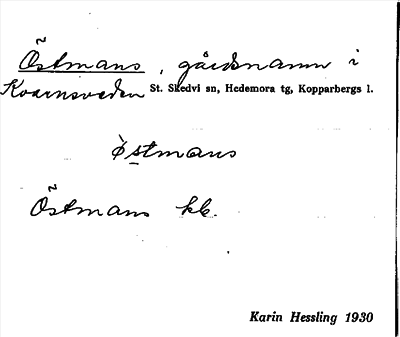 Östmans, gårdsnamn i
Kvarnsveden St. Skedvi sn, Hedemora tg, Kopparbergs l.
østmans
Östmans kb.
Karin Hessling 1930